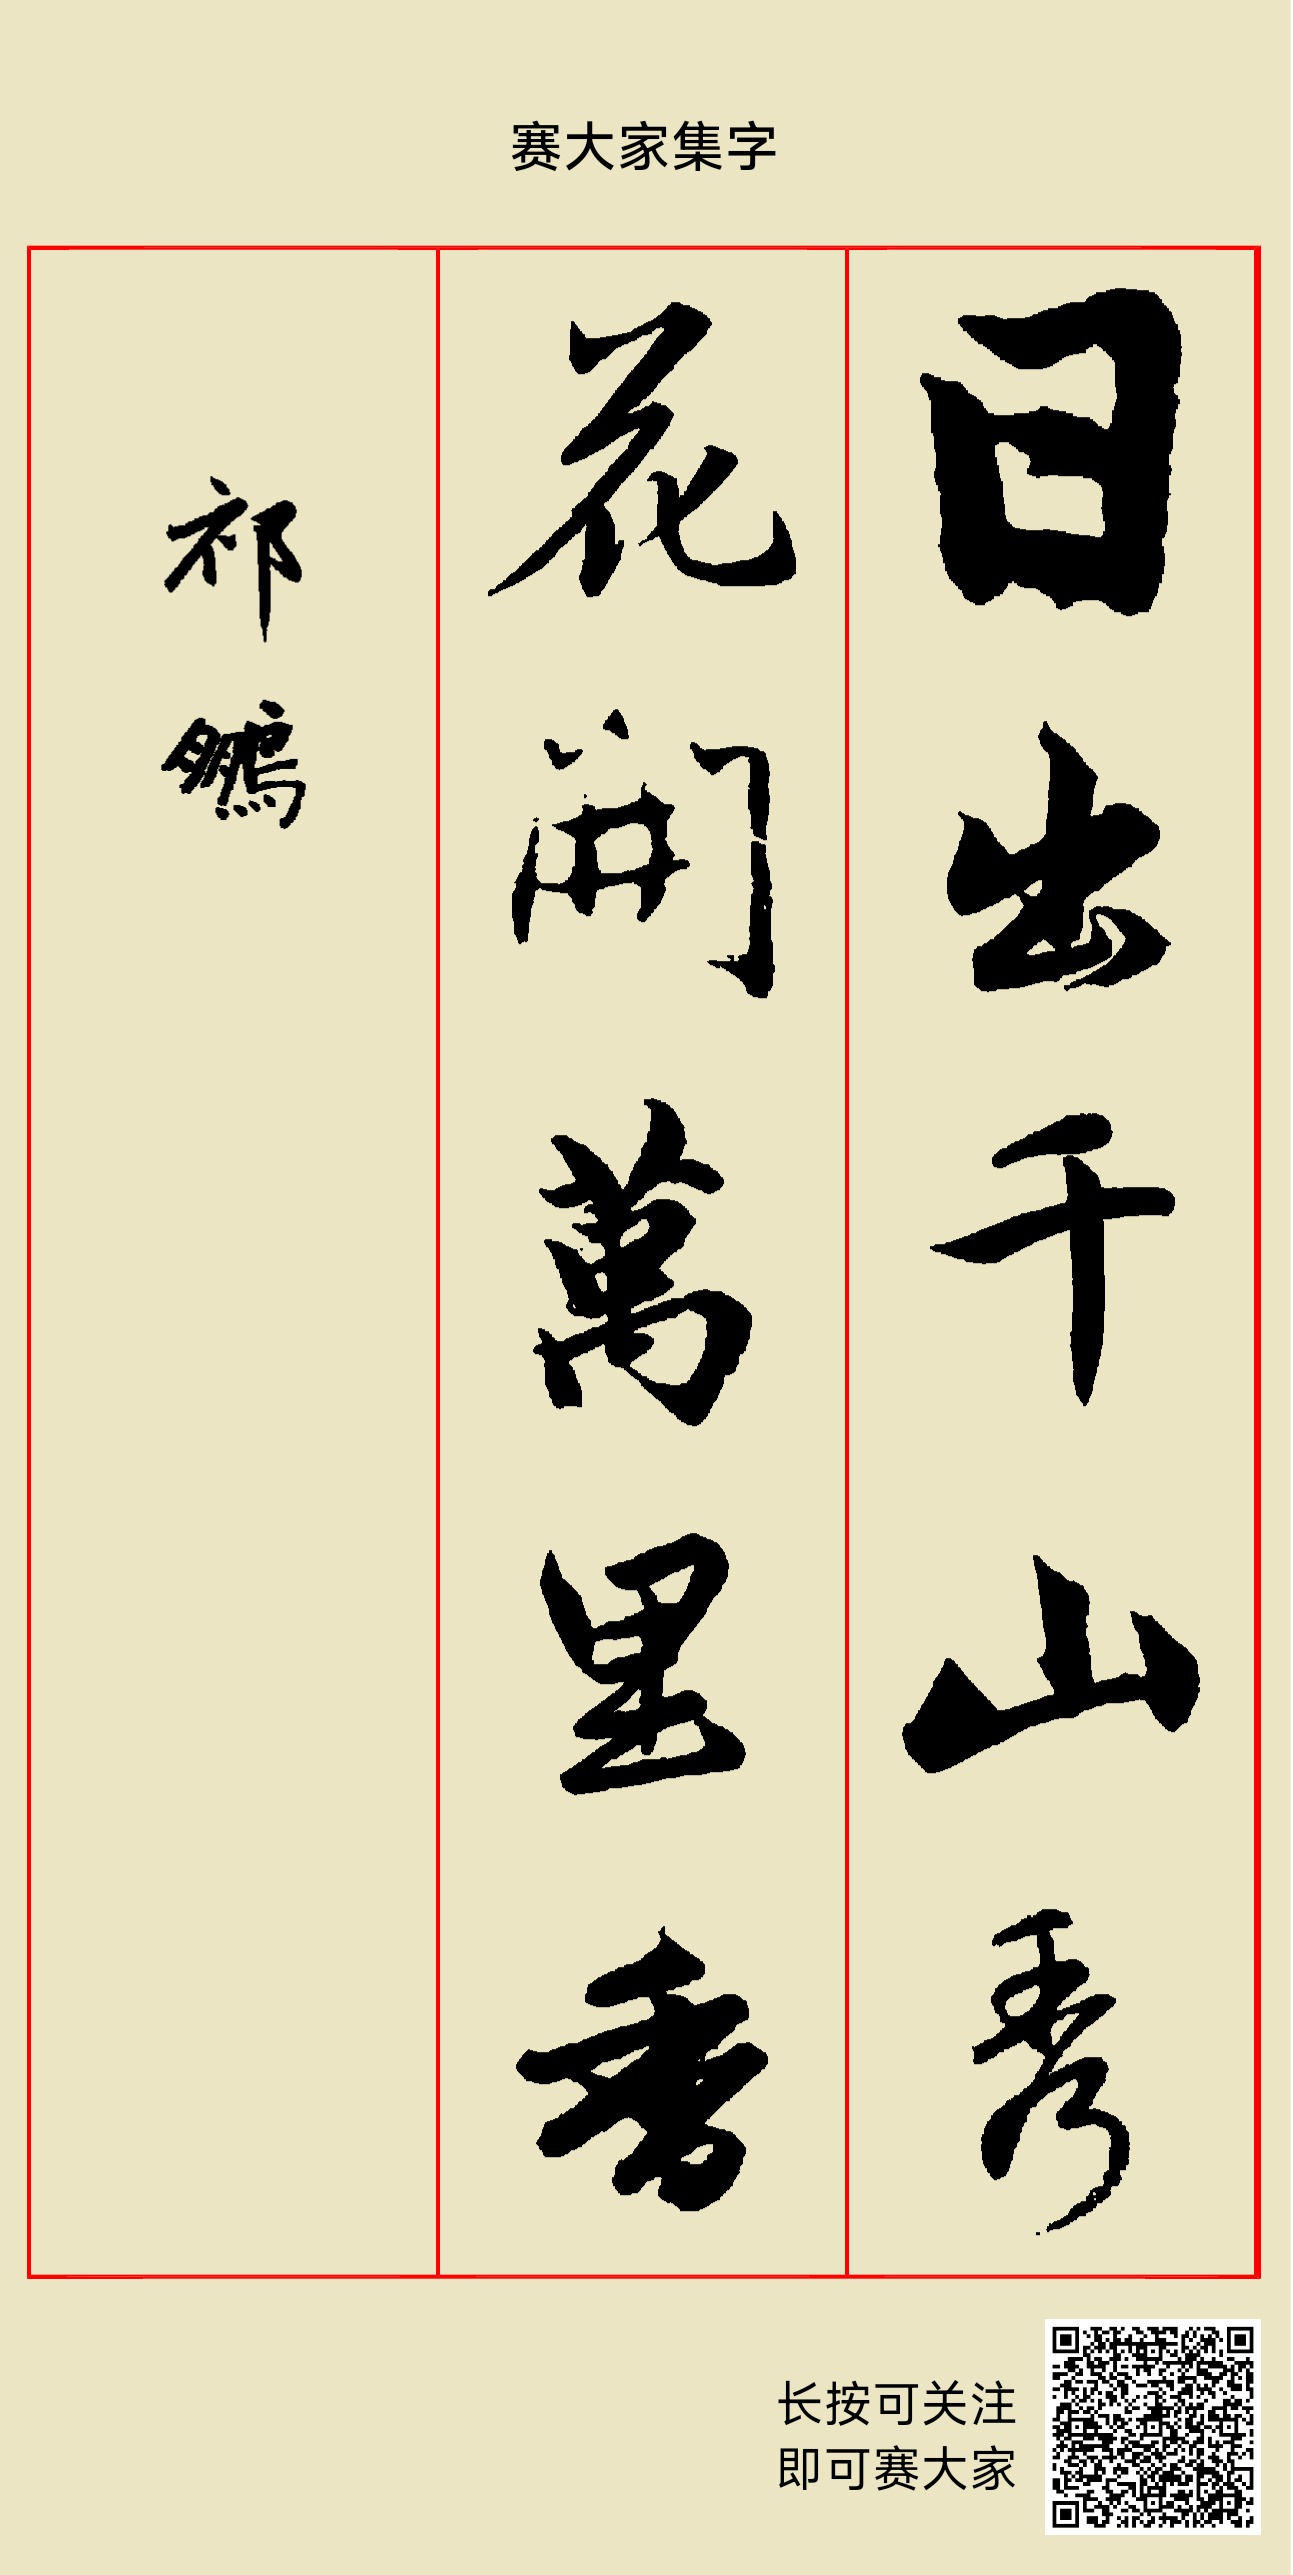 赛大家集字
日出千山秀
花開萬里香
祁鵬
长按可关注
即可赛大家